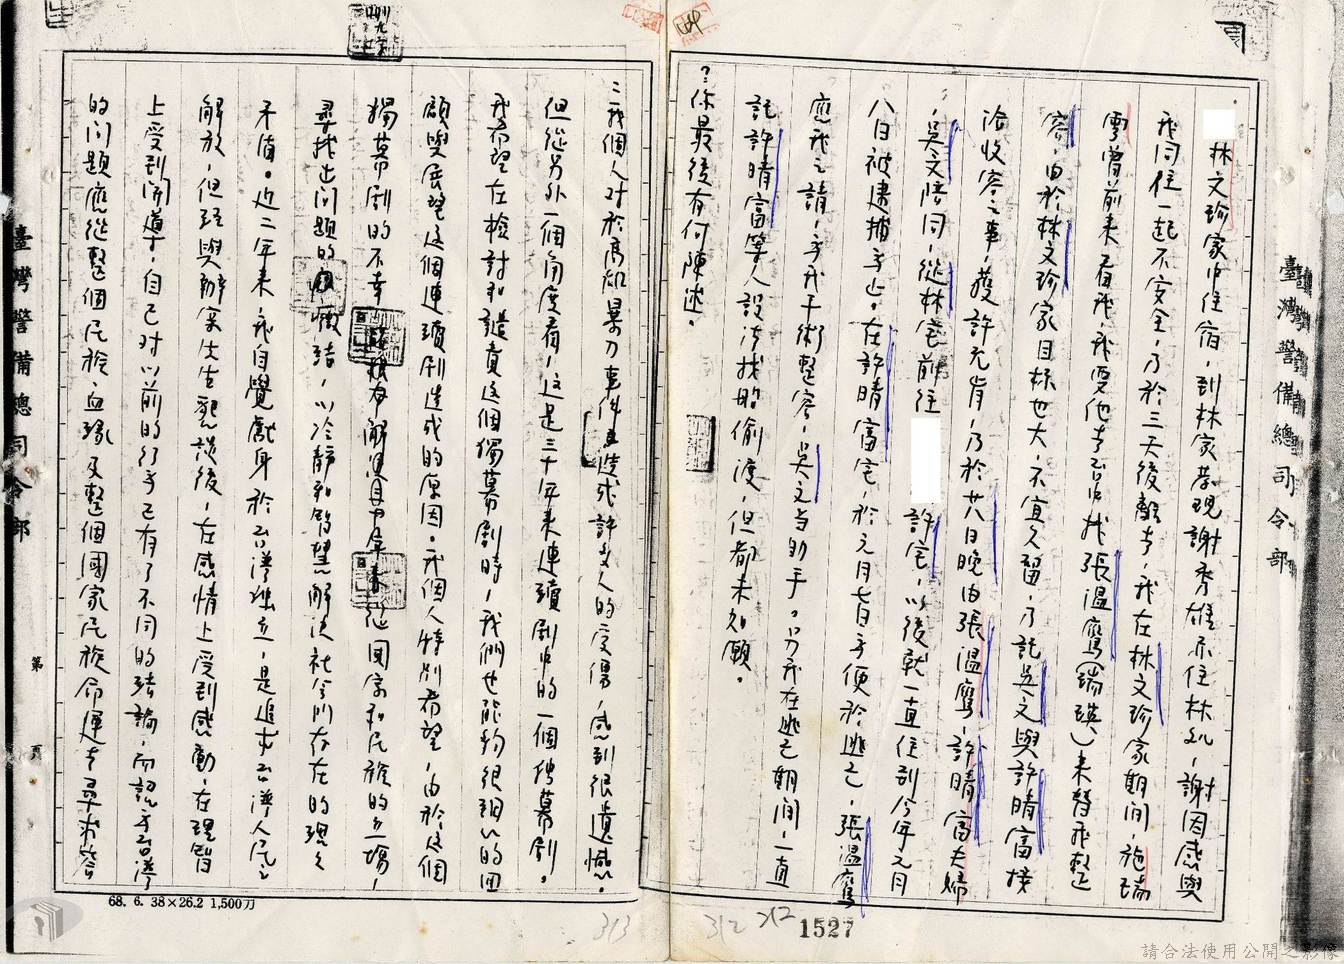 臺灣警備總司令部
林文珍家中住宿，到林家發現謝秀雄亦住林処，謝因感與
我同住一起不安全，乃於三天後離去，我在林文珍家期間，施瑞
雲曾前來看我，我要他去台中找張溫鷹（瑞瑛）來替我整
容，由於林文珍家目标也大，不宜久留，乃託吳文與許晴富接
洽收容之事，獲許允肯，乃於廿八日晚由張溫鷹、許晴富夫婦
、吳文陪同，從林宅前往
許宅，以後就一直住到今年元月
八日被逮捕為止。在許晴富宅，於元月七日為便於逃亡，張溫鷹
應我之請，為我手術整容，吳文为助手。另我在逃亡期間，一直
託許晴富等人設法找船偷渡，但都未如願。
？你最後有何陳述。
：我個人对於高雄暴力事件造成許多人的受傷，感到很遺憾。
但從另外一個角度看，这是三十年來連續剧中的一個獨幕剧。
我希望在檢討和譴責这個獨幕剧時，我們也能夠很細心的回
顧與展望这個連續剧造成的原因。我個人特別希望，由於这個
獨幕剧的不幸
從国家和民族的立場，
尋找出问题的
結，以冷静和智慧解决社会所存在的現
不值。近二年來，我自覺献身於台灣独立，是追求台灣人民之
解放，但經與辦案先生懇談後，在感情上受到感動，在理智
上受到開導，自己对以前的行為已有了不同的結論，而認為台灣
的问題應從整個民族、血緣及整個國家民族命運去尋求答
臺灣警備總司令部
第
頁
68. 6. 38×26.2 1,500刀
313
312
312
1527
請合法使用公開之影像